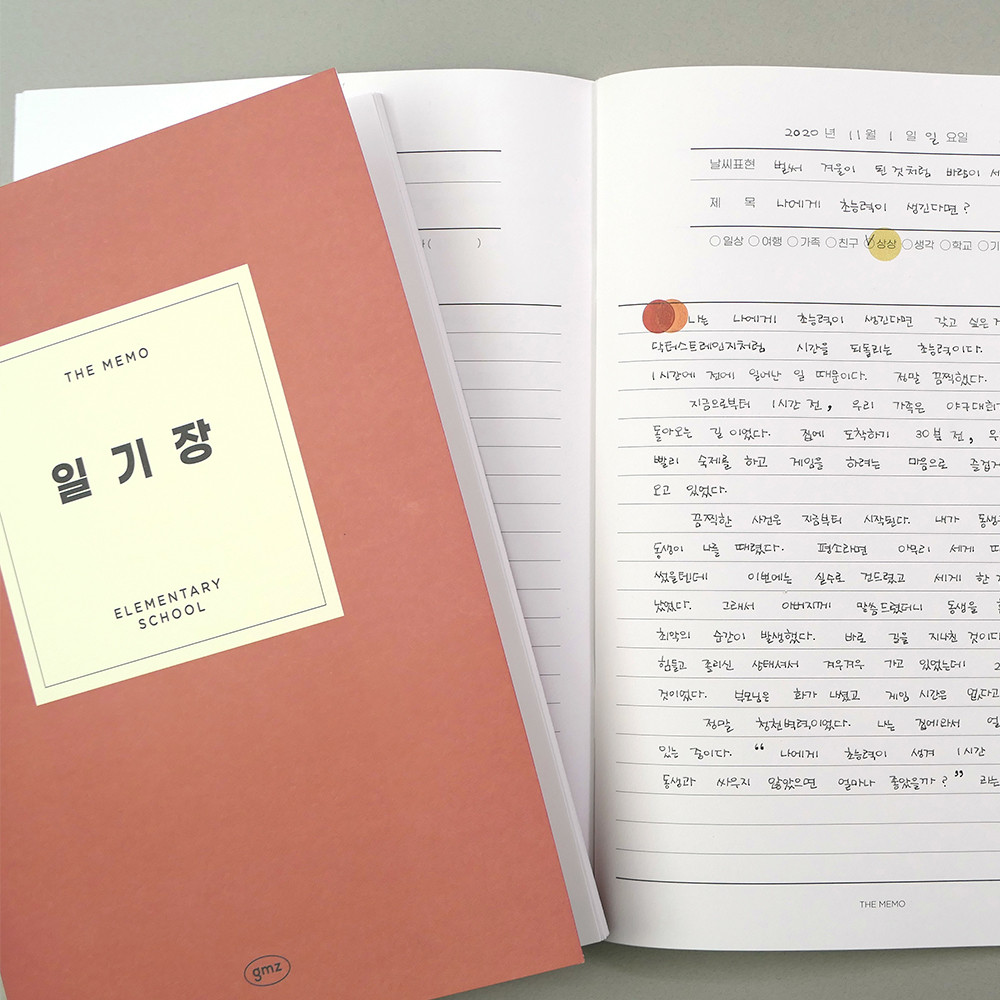 THE MEMO
일기장
ELEMENTARY
SCHOOL
gmz
( )
2020 년 11 월 1 일 일 요일
날씨표현 벌써 겨울이 된 것처럼 바람이 세
제 목 나에게 초능력이 생긴다면?
일상 여행 가족 친구 상상 생각 학교 기
나는 나에게 초능력이 생긴다면 갖고 싶은
닥터스트레인지처럼 시간을 되돌리는 초능력이다.
1시간에 전에 일어난 일 때문이다. 정말 끔찍했다.
지금으로부터 1시간 전, 우리 가족은
돌아오는 길이었다. 집에 도착하기 30분 전,
빨리 숙제를 하고 게임을 하려는 마음으로
오고 있었다.
끔찍한 사건은 지금부터 시작된다. 내가
동생이 나를 때렸다. 평소라면 아무리 세게
썼을텐데 이번에는 실수로 건드렸고 세게 한
났었다. 그래서 아버지께 말씀드렸더니 동생을
최악의 순간이 발생했다. 바로 길을 지나친
힘들고 졸리신 상태셔서 겨우겨우 가고 있었는데
것이었다. 부모님은 화가 나셨고 게임 시간은 없다고
정말 청천벽력이었다. 나는 집에와서
있는 중이다. “ 나에게 초능력이 생겨 1시간
동생과 싸우지 않았으면 얼마나 좋았을까?”
THE MEMO